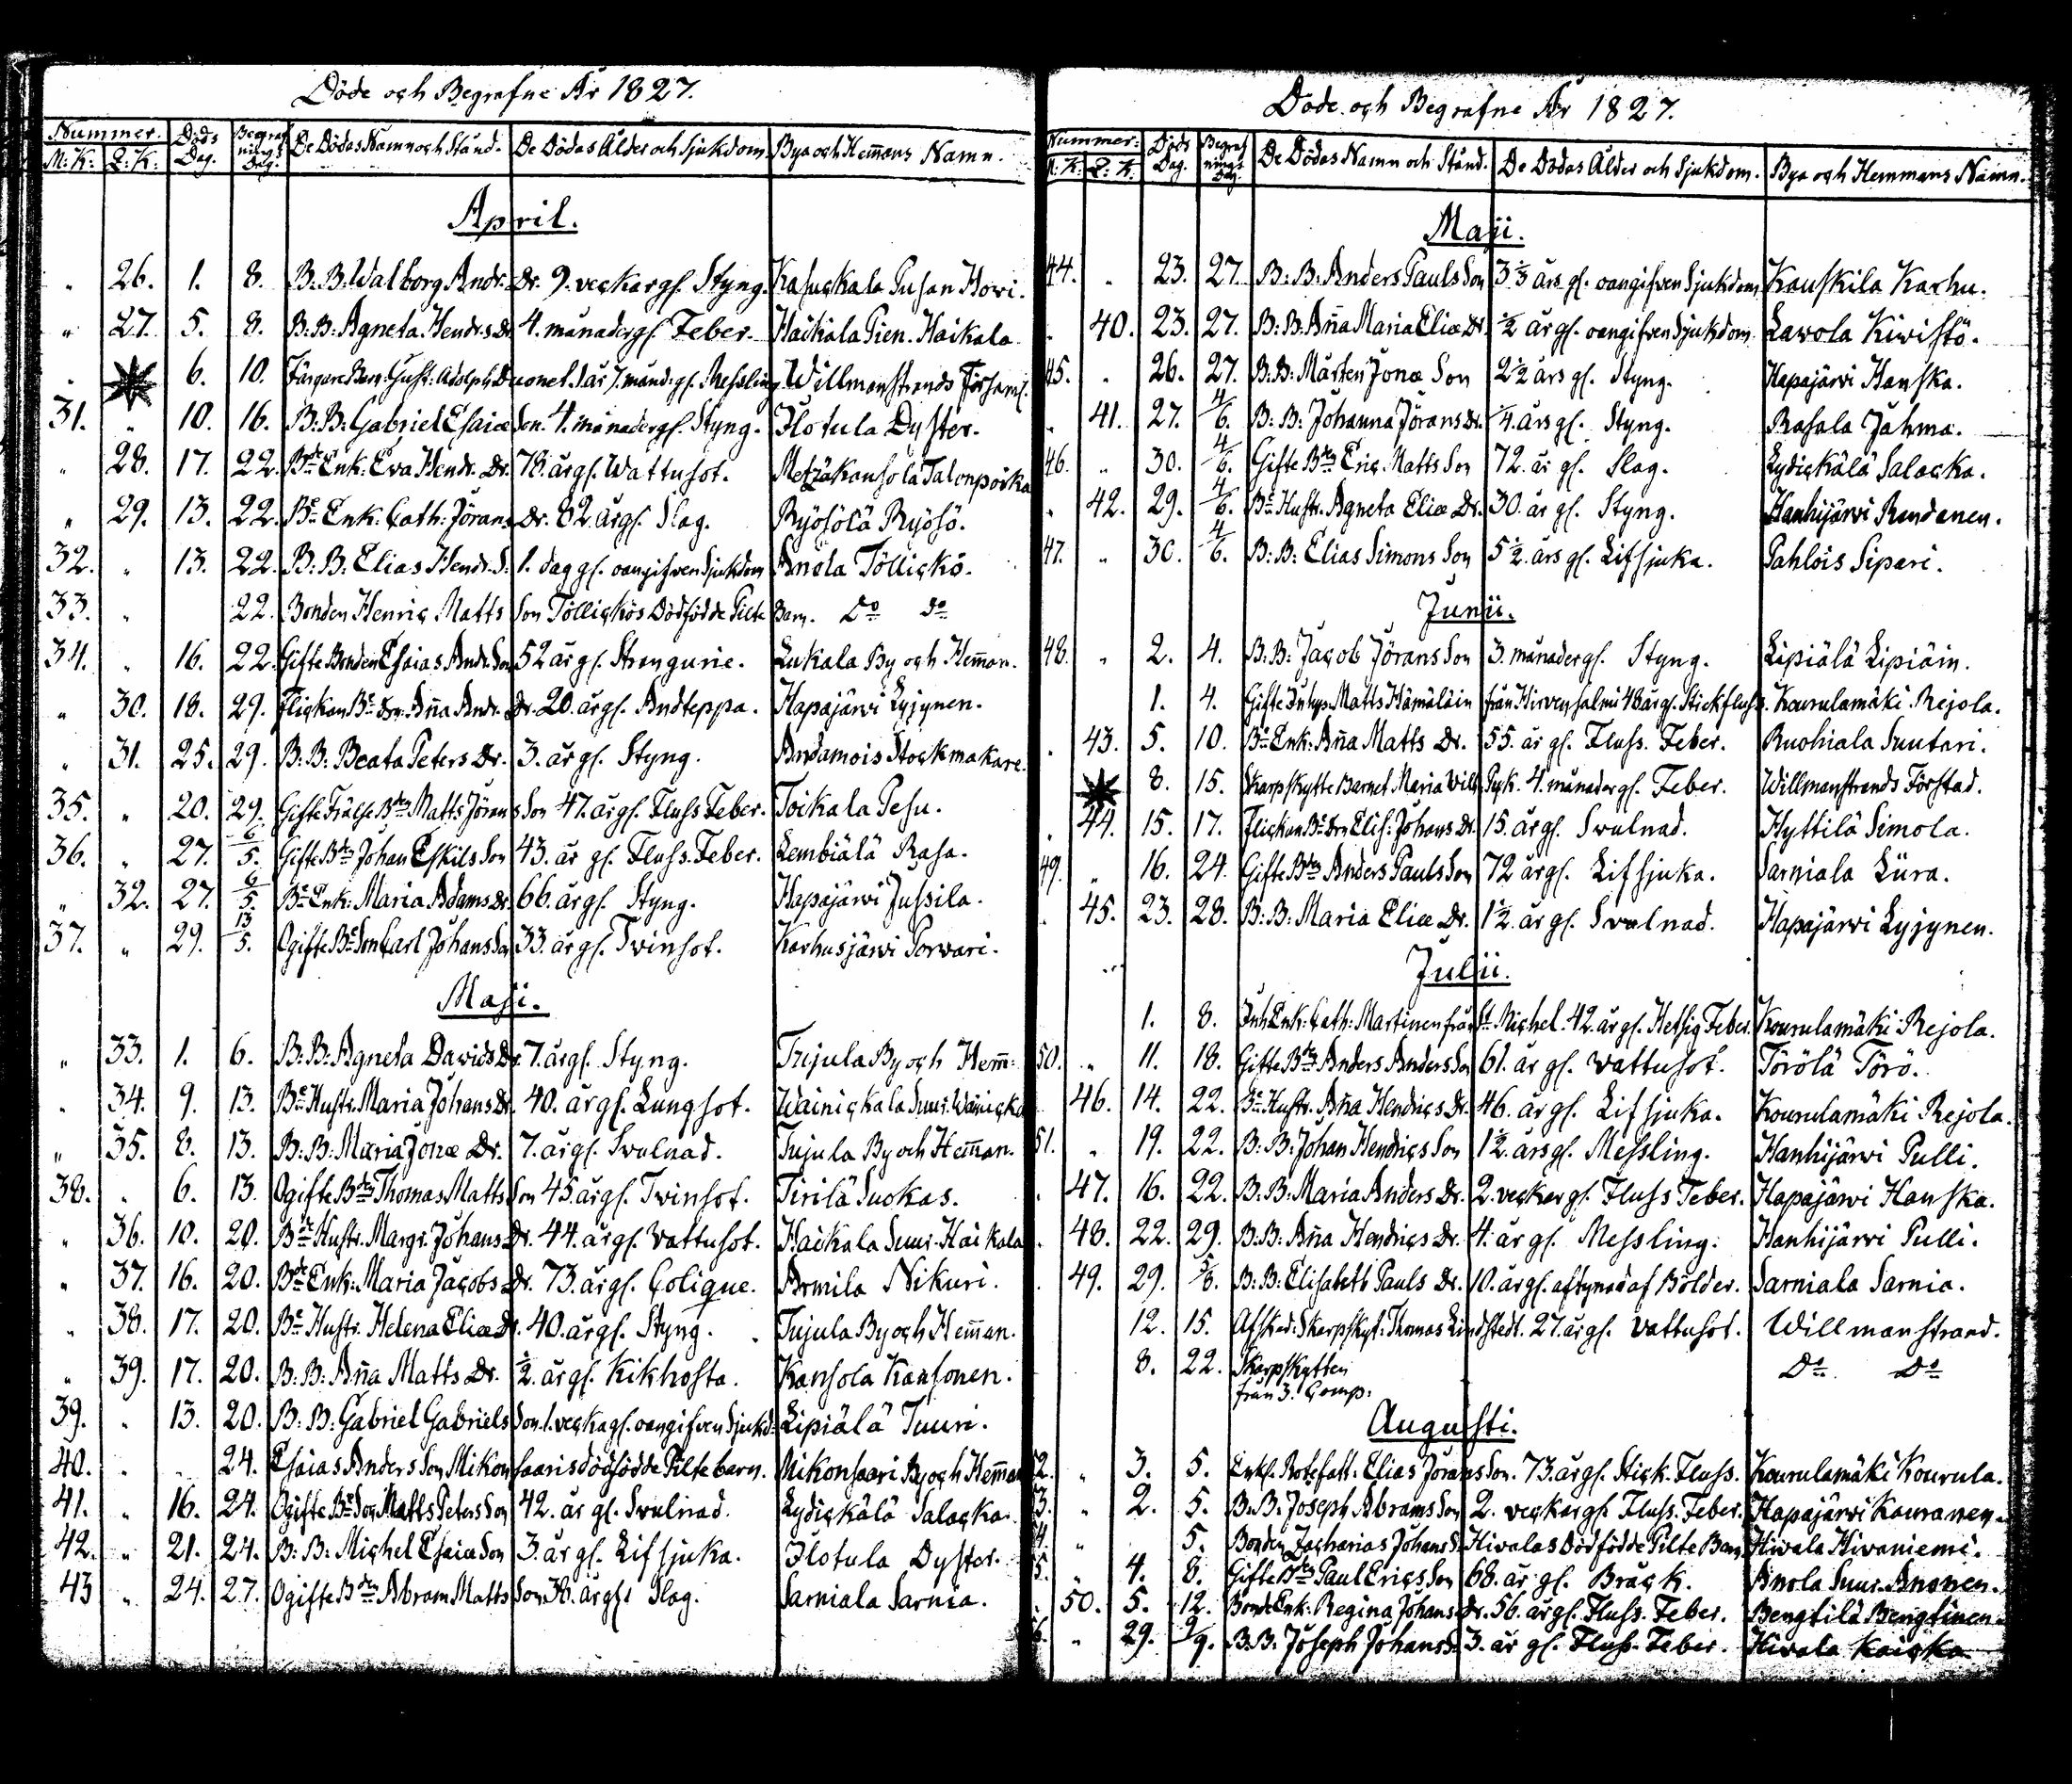 Döde och Begrafne År 1827.
Nummer. Döds Dag. Begrafnings Dag. De Dödas Namn och Stånd. De Dödas Ålder och Sjukdom. Bya och Hem̄ans Namn.
M: K: Q: K:
April.
" 26. 1. 8. B. B. Walborg Andr. Dr. 9. veckor gl. Styng. Kasuckala Pusan Hovi.
" 27. 5. 8. B: B: Agneta Hendr:s Dr 4. månader gl. Feber. Haikala Pien. Haikala
" 6. 10. Färgare Barn: Gust: Adolph 1 år 7. månd: gl. Messling Willmanstrands Församl.
31. " 10. 16. B: B: Gabriel Esaiæ Son. 4. månader gl. Styng. Ilotula Dyster.
" 28. 17. 22. Bde Enk: Eva Hendr. Dr. 78. år gl. Wattusot. Metzäkansola Talonpoika
" 29. 13. 22. Be Enk: Cath: Jörans Dr. 82. år gl. Slag. Ryösölä Ryösö.
32. " 13. 22. B: B: Elias Hendr. S: 1. dag gl. oangifven Sjukdom Anola Töllickö.
33. " 22. Bonden Henric Matts Son Töllickös Dödfödde Pilte Barn. Do do
34. " 16. 22. Gifte Bonden Esaias Andr. Son 52 år gl. Strengurie. Lukala By och Hem̄an.
" 30. 18. 29. Flickan Be Dr. An̄a Andr. Dr. 20. år gl. Andteppa. Hapajärvi Lyjynen.
" 31. 25. 29. B: B: Beata Peters Dr. 3. år gl. Styng. Andamois Stockmakare.
35. " 20. 29. Gifte Frälse Bden Matts Jörans Son 47. år gl. Fluss Feber. Toikala Pesu.
36. " 27. 6/5. Gifte Bden Johan Eskils Son 43. år gl. Fluss. Feber. Lembiälä Rasa.
" 32. 27. 6/5. Be Enk: Maria Adams Dr. 66. år gl. Styng. Hapajärvi Jussila.
37. " 29. 13/5. Ogifte Be Son Carl Johans Son 33. år gl. Tvinsot. Karhusjärvi Porvari.
Maji.
" 33. 1. 6. B: B: Agneta Davids Dr. 7. år gl. Styng. Tujula By och Hem̄:
" 34. 9. 13. Be Hustr. Maria Johans Dr. 40. år gl. Lungsot. Wainickala Suur. Wainicka
" 35. 8. 13. B: B: Maria Jonæ Dr. 7. år gl. Svulnad. Tujula By och Hem̄an.
38. " 6. 13. Ogifte Bden Thomas Matts Son 45. år gl. Tvinsot. Tirilä Suokas.
" 36. 10. 20. Bde Hustr. Margr. Johans Dr. 44. år gl. Vattusot. Haikala Suur. Haikala
" 37. 16. 20. Bde Enk: Maria Jacobs Dr. 73. år gl. Colique. Armila Nikuri.
" 38. 17. 20. Be Hustr. Helena Eliæ Dr. 40. år gl. Styng. Tujula By och Hem̄an.
" 39. 17. 20. B: B: An̄a Matts Dr. ½. år gl. Kikhosta. Kansola Kansonen.
39. " 13. 20. B: B: Gabriel Gabriels Son. 1. vecka gl. oangifven Sjukd: Lipiälä Tuuri.
40. " 24. Esaias Anders Son Mikonsaaris dödfödde Pilte barn. Mikonsaari By och Hem̄an
41. " 16. 24. Ogifte Be Son Matts Peters Son 42. år gl. Svulnad. Lydickälä Salacka.
42. " 21. 24. B: B: Michel Esaiæ Son 3. år gl. Lifsjuka. Ilotula Dyster.
43 " 24. 27. Ogifte Bden Abram Matts Son 38. år gl. Slag. Sarniala Sarnia.
Döde och Begrafne År 1827.
Nummer: Döds Dag. Begrafnings Dag. De Dödas Namn och Stånd. De Dödas Ålder och Sjukdom. Bya och Hemmans Namn.
M: K: Q: K.
Maji.
44. " 23. 27. B: B: Anders Pauls Son 3⅓ års gl. oangifven Sjukdom Kauskila Karhu.
" 40. 23. 27. B: B: An̄a Maria Eliæ Dr. ½ år gl. oangifven Sjukdom. Lavola Kivistö.
45. " 26. 27. B: B: Mårten Jonæ Son 2½ års gl. Styng. Hapajärvi Hanska.
" 41. 27. 4/6. B: B: Johanna Jörans Dr. ¼. års gl. Styng. Rasala Jahma.
46. " 30. 4/6. Gifte Bden Eric Matts Son 72. år gl. Slag. Lydickälä Salacka.
" 42. 29. 4/6. Be Hustr. Agneta Eliæ Dr. 30. år gl. Styng. Hanhijärvi Rendanen.
47. " 30. 4/6. B: B: Elias Simons Son 5½. års gl. Lifsjuka. Pahlois Sipari.
Junii.
48. " 2. 4. B: B: Jacob Jörans Son 3. månader gl. Styng. Lipiälä Lipiäin.
1. 4. Gifte Inhys Matts Hämäläin från Hirvensalmi 48 år gl. Stickfluss. Kourulamäki Rejola.
" 43. 5. 10. Be Enk: An̄a Matts Dr. 55. år gl. Fluss. Feber. Ruohiala Suutari.
8. 15. Skarpskytte Barnet Maria Vilh. Pyk. 4. månader gl. Feber. Willmanstrands Förstad.
" 44. 15. 17. Flickan Be Drn Elis: Johans Dr. 15. år gl. Svulnad. Hyttilä Simola.
49. " 16. 24. Gifte Bden Anders Pauls Son 72 år gl. Lifsjuka. Sarniala Lüra.
" 45. 23. 28. B: B: Maria Eliæ Dr. 1½. år gl. Svulnad. Hapajärvi Lyjynen.
Julii.
1. 8. Inh Enk: Cath: Martinen från St Michel. 42. år gl. Hetsig Feber. Kourulamäki Rejola.
50. " 11. 18. Gifte Bden Anders Anders Son 61. år gl. Vattusot. Törölä Törö.
46. 14. 22. Be Hustr. An̄a Hendrics Dr. 46. år gl. Lifsjuka. Kourulamäki Rejola.
51. " 19. 22. B: B: Johan Hendrics Son 1½. års gl. Messling. Hanhijärvi Pulli.
" 47. 16. 22. B: B: Maria Anders Dr. 2. veckor gl. Fluss Feber. Hapajärvi Hanska.
" 48. 22. 29. B: B: An̄a Hendrics Dr. 4. år gl. Messling. Hanhijärvi Pulli.
49. 29. 5/8. B: B: Elisabeth Pauls Dr. 10. år gl. aftynad af Bölder. Sarniala Sarnia.
12. 15. Afsked: Skarpskyt: Thomas Lindstedt. 27. år gl. Vattusot. Willmanstrand.
8. 22. Skarpskytten Do Do
från 3. Comp:
Augusti.
52. " 3. 5. Enkl. Rotefatt: Elias Jörans Son. 73. år gl. Stick. Fluss. Kourulamäki Kourula.
53. " 2. 5. B: B: Joseph Abrams Son 2. veckor gl. Fluss. Feber. Hapajärvi Kouranen.
54. " 5. Bonden Zacharias Johans S. Hivalas Dödfödde Pilte Barn Hivala Hivaniemi.
55. " 4. 8. Gifte Bden Paul Erics Son 68. år gl. Bråck. Anola Suur. Anonen.
50. 5. 12. Bonde Enk: Regina Johans Dr. 56. år gl. Fluss. Feber. Bengtilä Bengtinen.
56. " 29. 2/9. B: B: Joseph Johans S. 3. år gl. Fluss. Feber. Hivala Kaicka